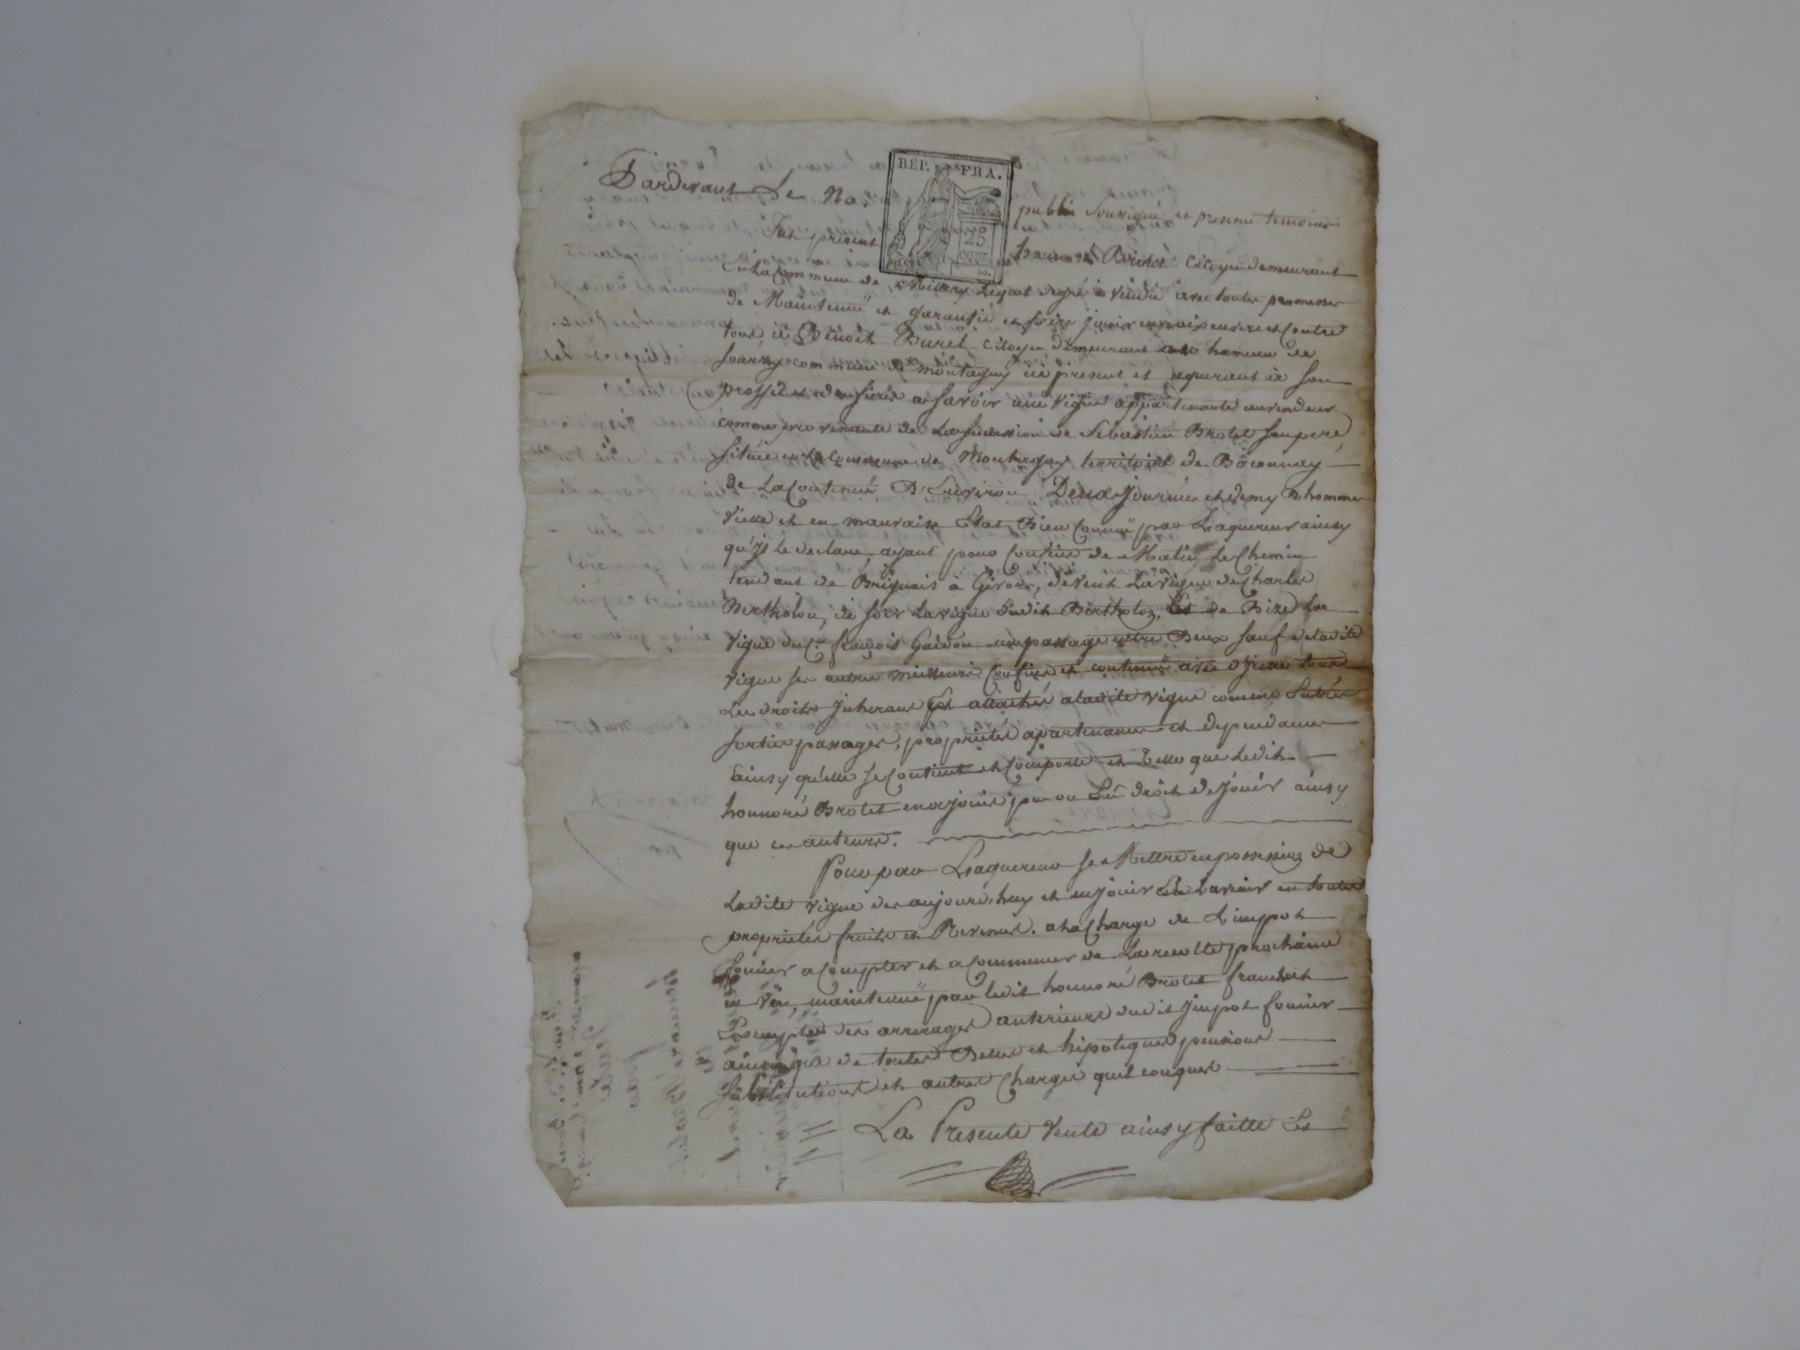 REP. FRA.
25
CENT.
Pardevant Le No.re public Soussigné et presens temoins
fut present honnoré Brotet Citoyen demeurant
en la Commune de Millery Lequel degré a vendu avec toutes promesses
de Maintenue et garantie et faire jouir envers et Contre
tous à Benoit Burel Citoyen demeurant au hameau de
Sourzy commune de Montagny ici present et aquerant à Son
proffit et a Savoir une vigne appartenante au vendeur
comme provenante de La Succession de Sebastien Brotet Son pere
Située en la Commune de Montagny territoire de Baconnay
de La Contenue D'Environ Deux Journées et demy D'homme
vielle et en mauvais Etat, Bien Connue par Laquereur ainsy
qu'il le declare, ayant pour Confins de Matin Le Chemin
tendant de Brignais à Givors, de vent La vigne de Charles
Bertholon, de Soir La vigne dudit Bertholon, Et de Bize La
vigne du C.n françois Gaidon un passage entre Deux Sauf de ladite
vigne Ses autres meilleurs Confins et contenue avec tous
Les droits Inherans Et attachés a ladite vigne comme Entrées
Sorties passages, proprietés apartenances et dependances
ainsy qu'elle Se Contient et Comporte et Telle que Ledit
honnoré Brotet en a joui par ou Eû droit de Jouir ainsy
que ses auteurs.
Pour par Laquereur Se Mettre en possession de
Ladite vigne des aujourd'huy et en jouir a L'avenir en toutes
proprietés fruits et Revenus. a la Charge de L'impot
foncier a Compter et a Commencer de La recolte prochaine
en vin, maintenue par ledit honnoré Brotet franche et
Exempte des arrerages anterieurs dudit Impot foncier
ainsi que de toutes Dettes et hipoteques pensions
Substitutions et autres Charges quelconques
La Presente vente ainsy faitte Et